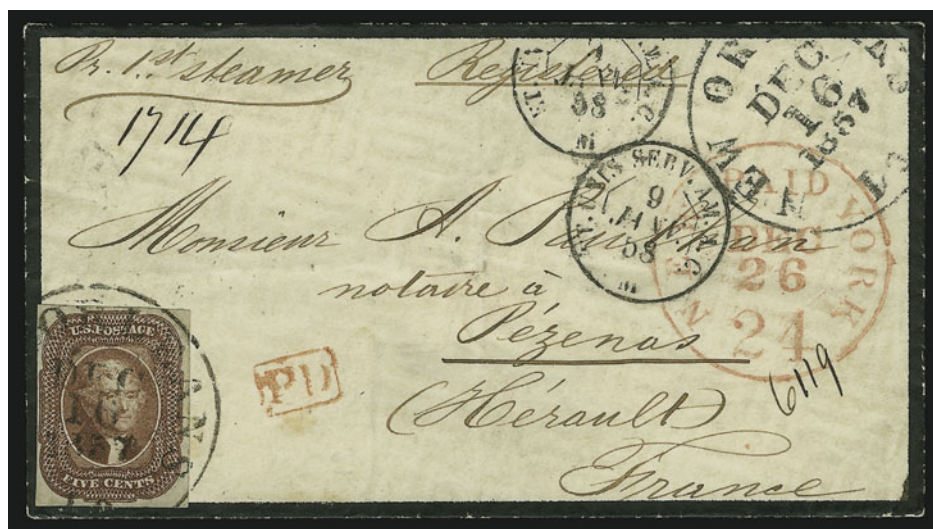 Pr. 1st steamer Registered
1714
NEW ORLEANS
DEC
16
1857
ET. UNIS SERV. AM.
9
JANV
58
M
NEW PAID YORK
DEC
26
24
Monsieur A.
notaire à
Pézenas
(Hérault)
France
6119
PD
U.S. POSTAGE
FIVE CENTS
DEC
16